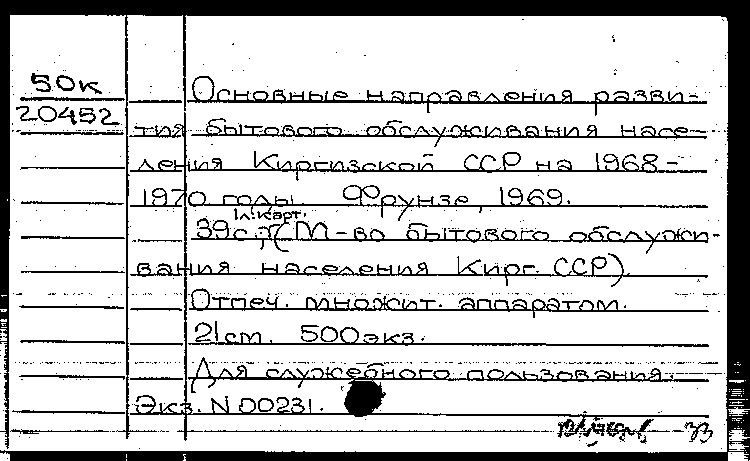 50к
20452
Основные направления разви-
тия бытового обслуживания насе-
ления Киргизской ССР на 1968-
1970 годы. Фрунзе, 1969.
1л.карт.
39с.; (М-во бытового обслужи-
вания населения Кирг. ССР).
Отпеч. множит. аппаратом.
21см. 500экз.
Для служебного пользования.
Экз. N 00231.
-73